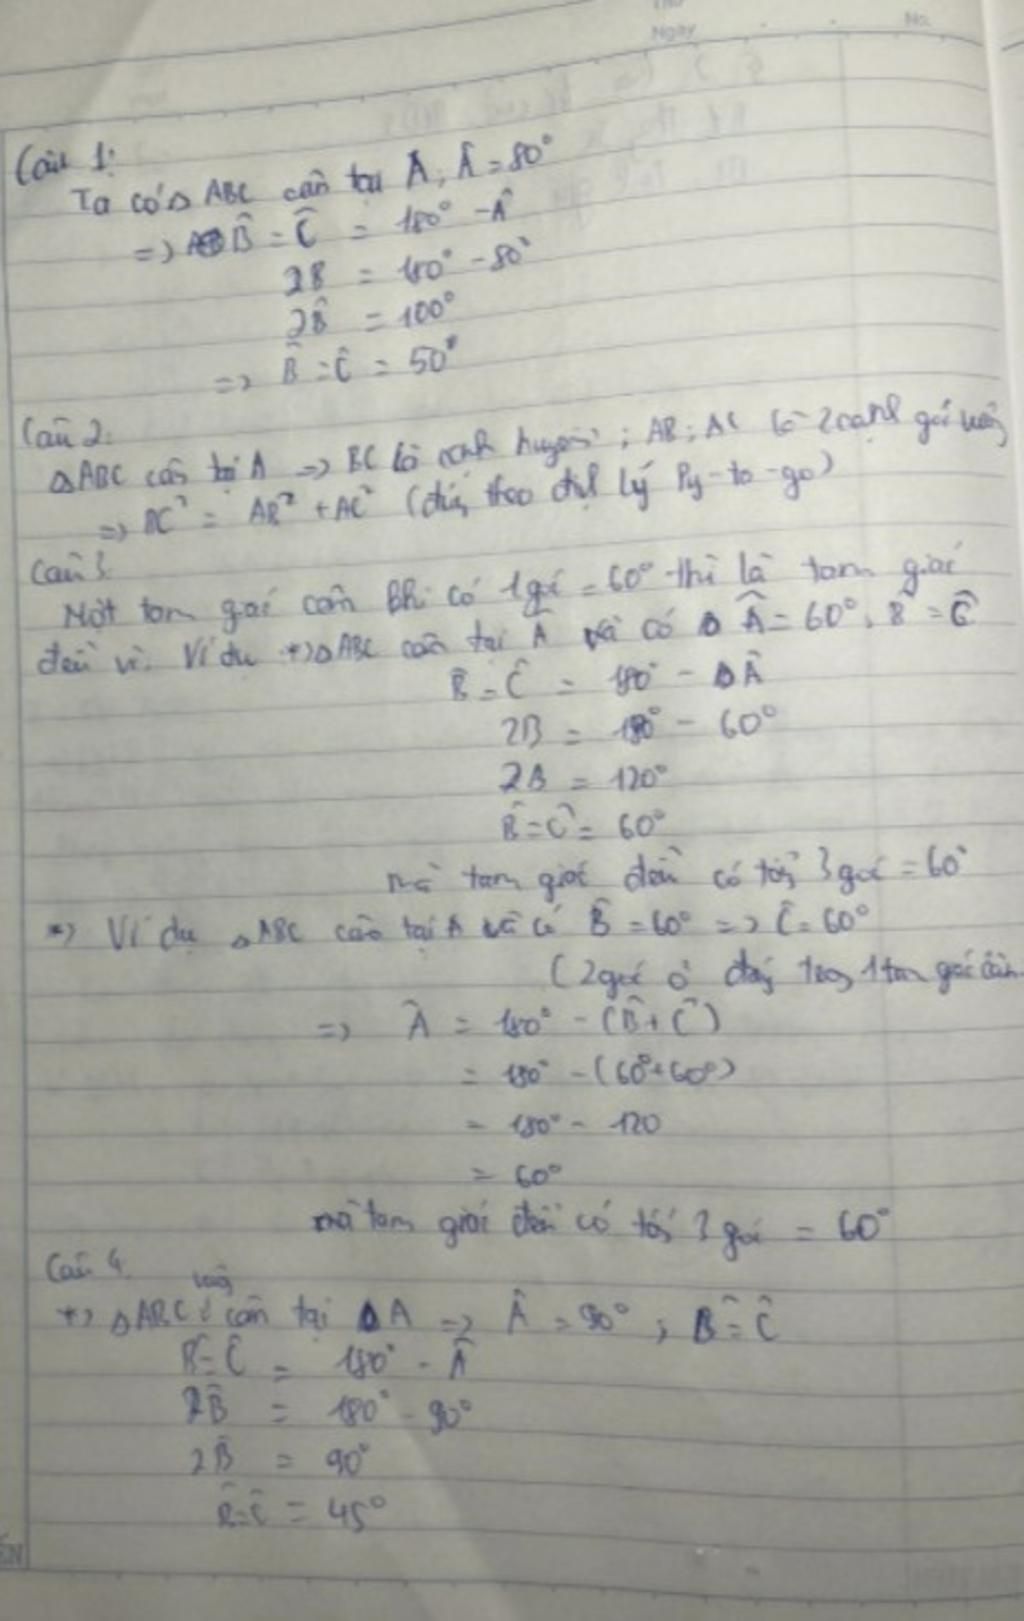 Thứ
Ngày
No.
Câu 1:
Ta có Δ ABC cân tại A, Â = 80°
=> B̂ = Ĉ = 180° - Â
2B = 180° - 80°
2B̂ = 100°
=> B̂ = Ĉ = 50°
Câu 2:
Δ ABC cân tại A => BC là cạnh huyền ; AB ; AC là 2 cạnh góc vuông
=> BC² = AB² + AC² (đúng theo định lý Py-ta-go)
Câu 3
Một tam giác cân khi có 1 góc = 60° thì là tam giác
đều vì. Ví dụ *) Δ ABC cân tại A và có Δ Â = 60°, B̂ = Ĉ
B̂ = Ĉ = 180° - Δ Â
2B = 180° - 60°
2B = 120°
B̂ = Ĉ = 60°
mà tam giác đều có tới 3 góc = 60°
*) Ví dụ Δ ABC cân tại A và có B̂ = 60° => Ĉ = 60°
(2 góc ở đáy trong 1 tam giác cân
=> Â = 180° - (B̂ + Ĉ)
= 180° - (60° + 60°)
= 180° - 120
= 60°
mà tam giác đều có tới 3 góc = 60°
Câu 4.
vuông
*) Δ ABC cân tại Δ A => Â = 90° ; B̂ = Ĉ
B̂ = Ĉ = 180° - Â
2B̂ = 180° - 90°
2B̂ = 90°
B̂ = Ĉ = 45°